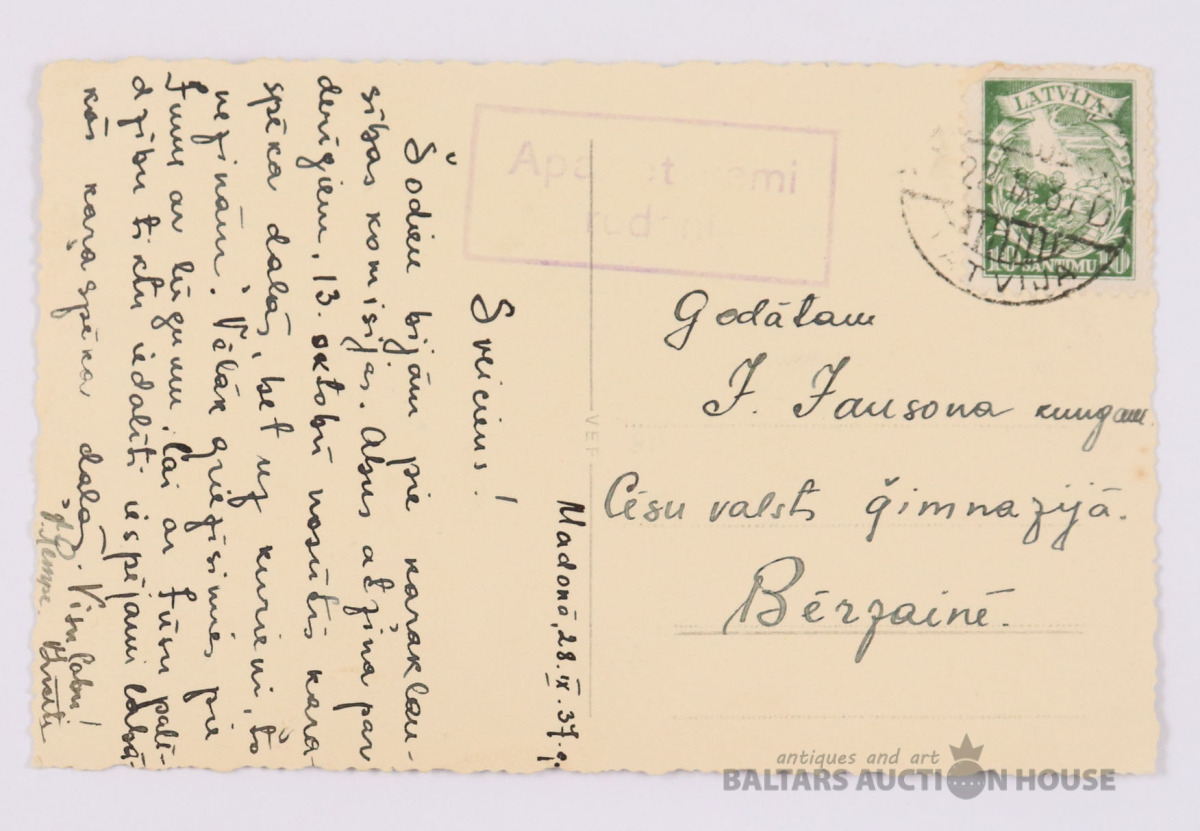 Madonā, 28. IX. 37. g.
Sveiciens!
Šodien bijām pie karaklau-
sības komisijas. Abus atzina par
derīgiem, 13. oktobrī nosūtīs kara-
spēka daļās, bet uz kurieni, to
nezinām. Vēlāk griezīsimies pie
Jums ar lūgumu, lai ar Jūsu palī-
dzību tiktu iedalīti iespējami labā-
kās karaspēka daļās. Visu labu!
J. Ķempe.
LATVIJA
10 SANTIMU 10
IX 37
LATVIJA
Godātam
J. Jansona kungam
Cēsu valsts ģimnazijā.
Bērzainē.
VEF
antiques and art
BALTARS AUCTION HOUSE